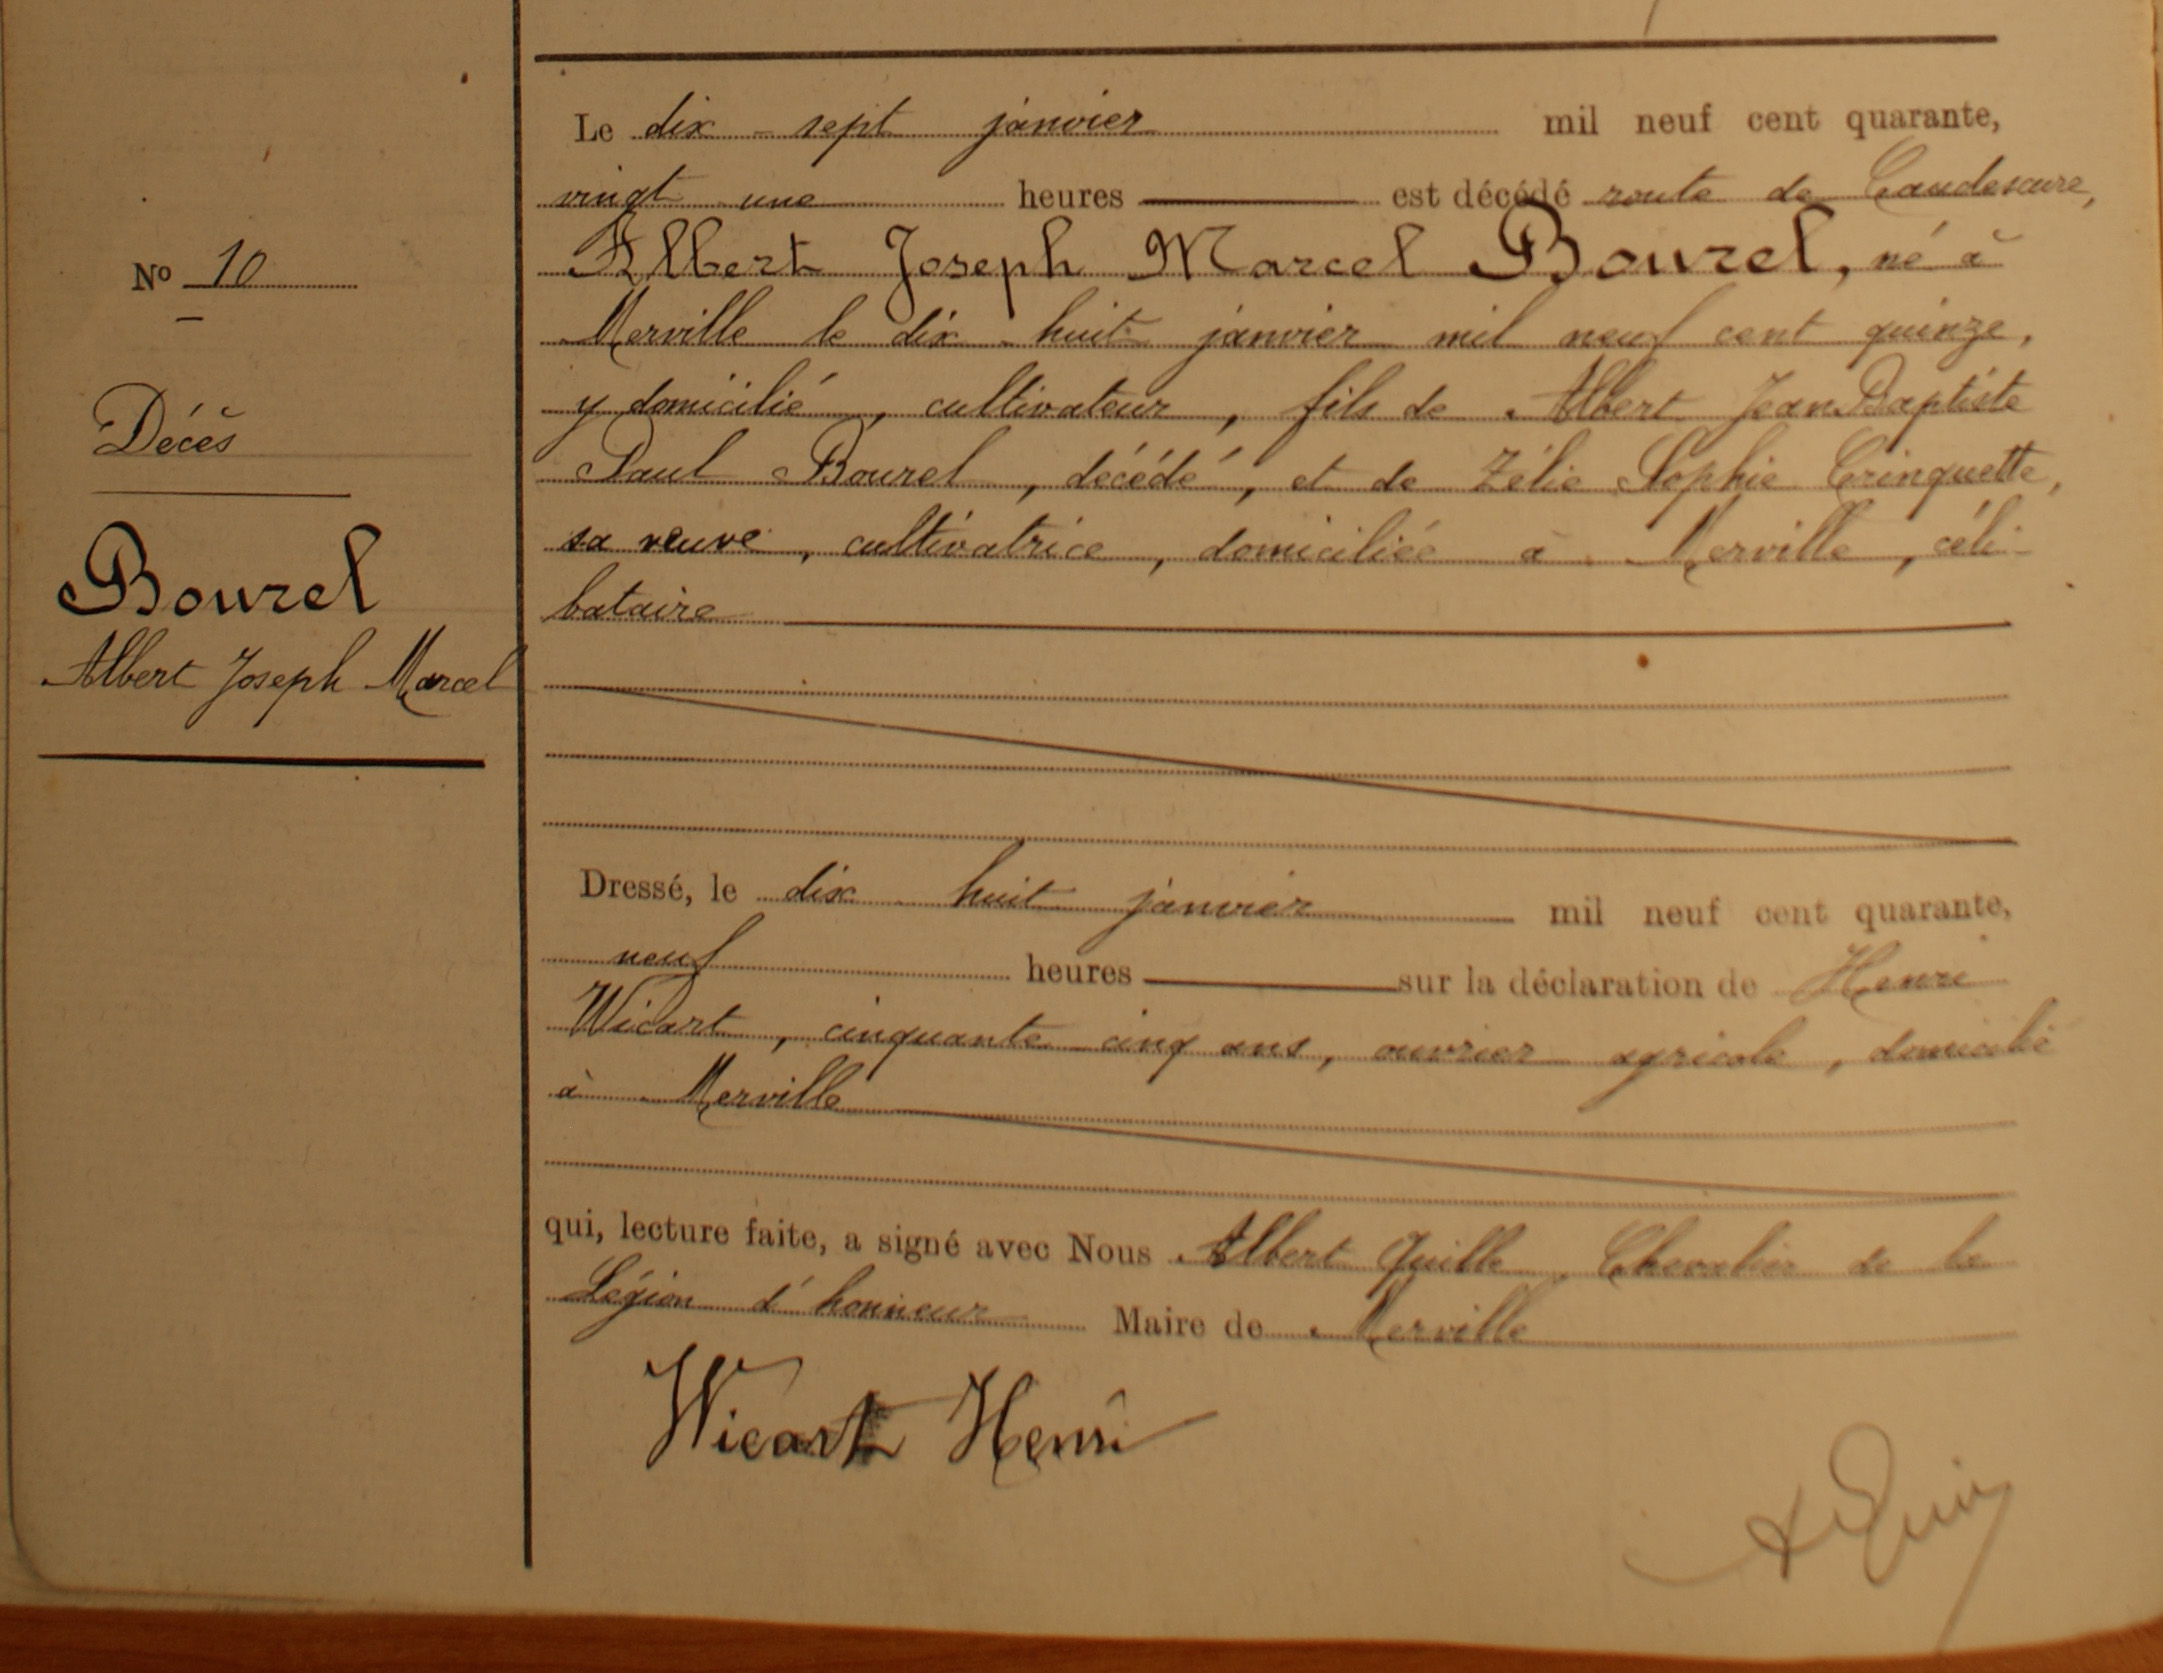 Le dix-sept janvier mil neuf cent quarante,
vingt une heures est décédé route de Caudescure,
Albert Joseph Marcel Bourel, né à
Merville le dix-huit janvier mil neuf cent quinze,
y domicilié, cultivateur, fils de Albert Jean Baptiste
Paul Bourel, décédé, et de Zélie Sophie Crinquette,
sa veuve, cultivatrice, domiciliée à Merville, céli-
bataire
No 10
Décès
Bourel
Albert Joseph Marcel
Dressé, le dix huit janvier mil neuf cent quarante,
neuf heures sur la déclaration de Henri
Wicart, cinquante cinq ans, ouvrier agricole, domicilié
à Merville
qui, lecture faite, a signé avec Nous Albert Quille, Chevalier de la
Légion d'honneur Maire de Merville
Wicart Henri